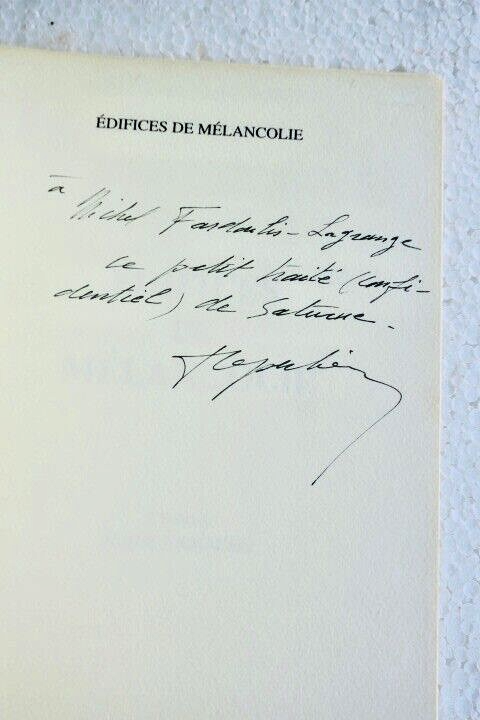 ÉDIFICES DE MÉLANCOLIE
à
Michel Fardoulis-Lagrange
ce petit traité (confi-
dentiel) de Saturne.